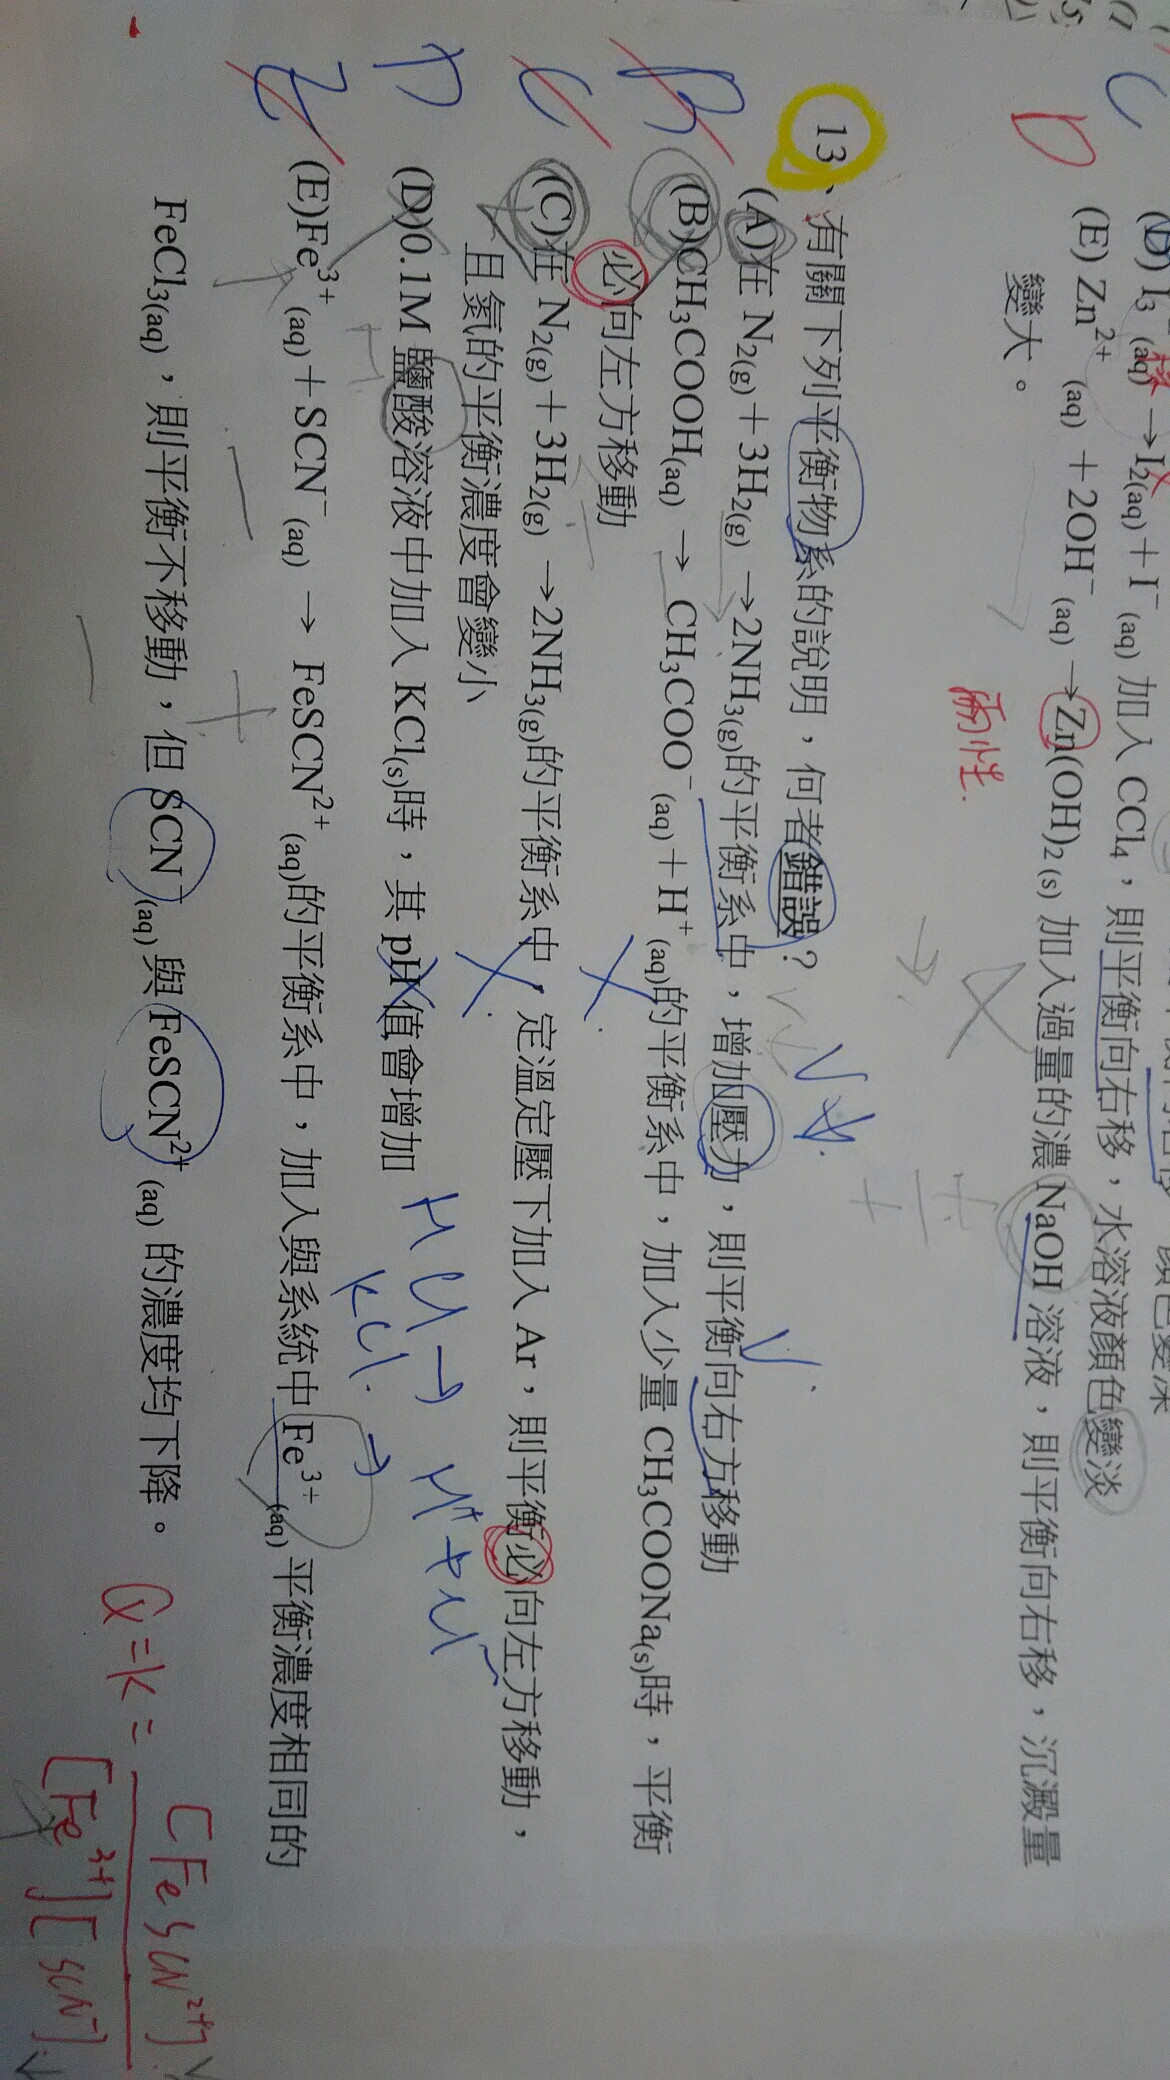 (D) I₃⁻(aq) → I₂(aq) + I⁻(aq) 加入 CCl₄，則平衡向右移，水溶液顏色變淡
(E) Zn²⁺(aq) + 2OH⁻(aq) → Zn(OH)₂(s) 加入過量的濃 NaOH 溶液，則平衡向右移，沉澱量
變大。
兩性.
D
13、有關下列平衡物系的說明，何者錯誤？
(A)在 N₂(g)＋3H₂(g) →2NH₃(g)的平衡系中，增加壓力，則平衡向右方移動
B
(B)CH₃COOH(aq) → CH₃COO⁻(aq)＋H⁺(aq)的平衡系中，加入少量 CH₃COONa(s)時，平衡
必向左方移動
C
(C)在 N₂(g)＋3H₂(g) →2NH₃(g)的平衡系中，定溫定壓下加入 Ar，則平衡必向左方移動，
且氨的平衡濃度會變小
D
(D)0.1M 鹽酸溶液中加入 KCl(s)時，其 pH 值會增加
HCl → H⁺ + Cl⁻
KCl.
E
(E)Fe³⁺(aq)＋SCN⁻(aq) → FeSCN²⁺(aq)的平衡系中，加入與系統中 Fe³⁺(aq) 平衡濃度相同的
FeCl₃(aq)，則平衡不移動，但 SCN⁻(aq)與 FeSCN²⁺(aq) 的濃度均下降。
Q = K = [FeSCN²⁺] / [Fe³⁺][SCN⁻]